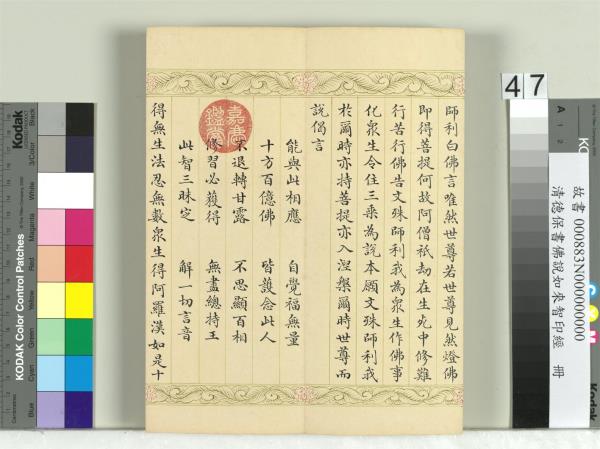 師利白佛言唯然世尊若世尊見然燈佛
即得菩提何故阿僧祇劫在生死中修難
行苦行佛告文殊師利我為眾生作佛事
化眾生令住三乘為說本願文殊師利我
於爾時亦持菩提亦入涅槃爾時世尊而
說偈言
能與此相應 自覺福無量
十方百億佛 皆護念此人
不退轉甘露 不思顯百相
修習必獲得 無盡總持王
此智三昧定 解一切言音
得無生法忍無數眾生得阿羅漢如是十
嘉慶
鑑賞
47
故書 000883N000000000
清德保書佛說如來智印經 冊
KODAK Color Control Patches
Kodak
Blue
Cyan
Green
Yellow
Red
Magenta
White
3/Color
Black
A 1 2